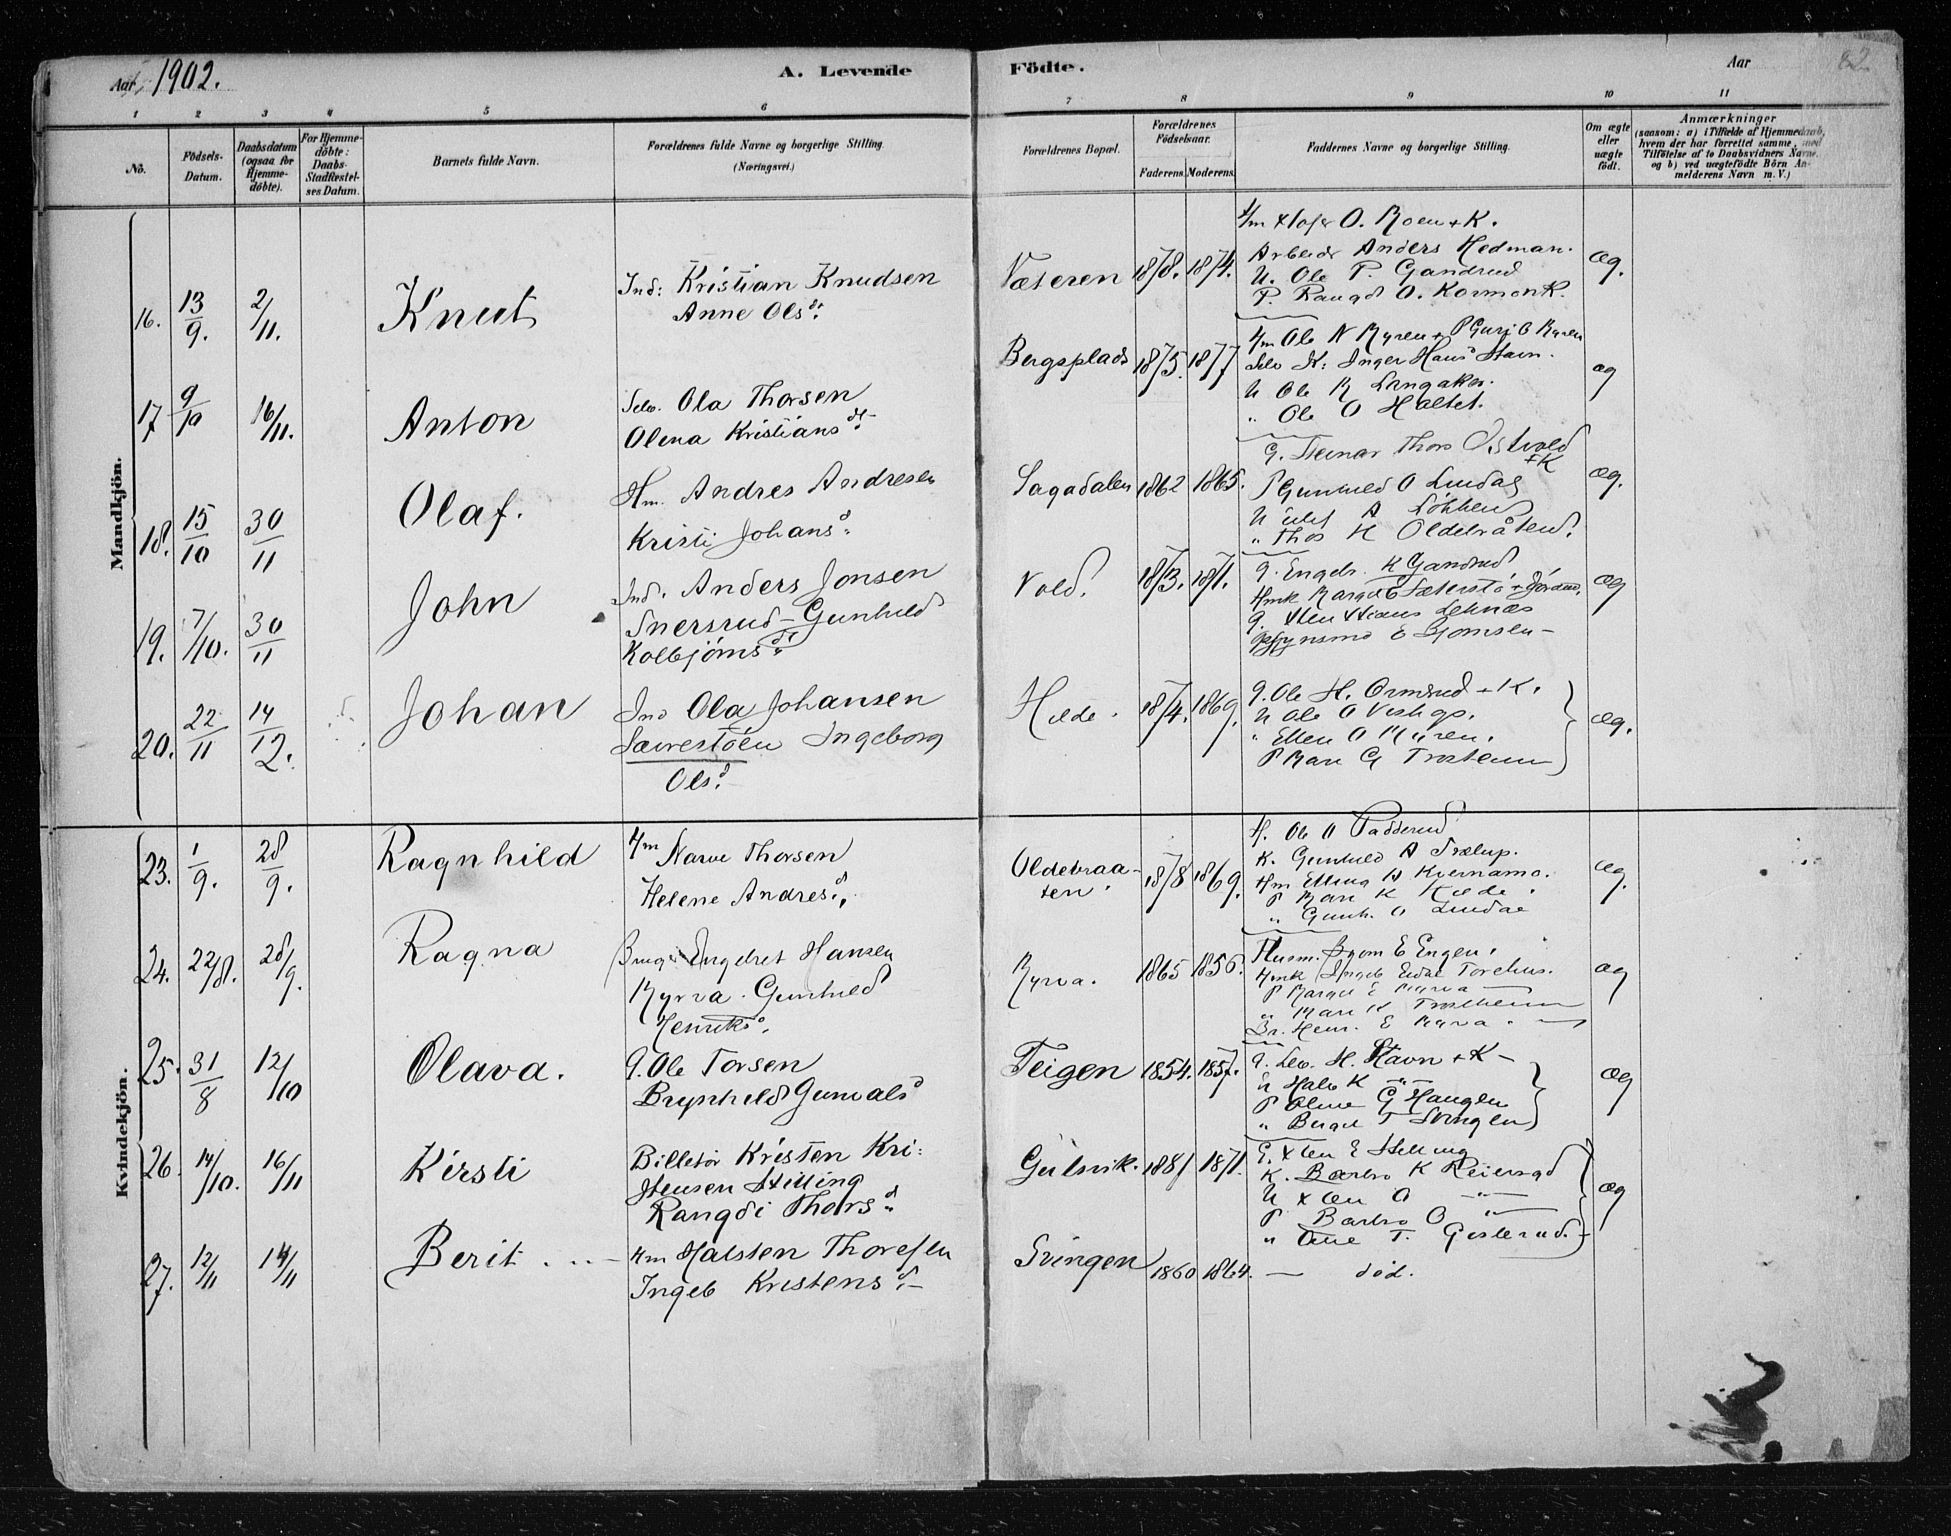 Aar 1902.
A. Levende
Födte.
Aar
82
1 2 3 4 5 6 7 8 9 10 11
No.
Födsels-Datum.
Daabsdatum (ogsaa for Hjemme-döbte).
For Hjemme-döbte: Daabs-Stadfæstel-ses Datum.
Barnets fulde Navn.
Forældrenes fulde Navne og borgerlige Stilling.
(Næringsvei.)
Forældrenes Bopæl.
Forældrenes Födselsaar.
Faderens. Moderens.
Faddernes Navne og borgerlige Stilling.
Om ægte eller uægte födt.
Anmærkninger
(saasom: a) i Tilfælde af Hjemmedaab,
hvem der har forrettet samme, med
Tilföielse af to Daabsvidners Navne,
og b) ved uægtefödte Börn An-
melderens Navn m. V.)
Mandkjön.
16. 13/9. 2/11. Knut
Ind: Kristian Knudsen
Anne Olsd.
Næseren 1878. 1874.
O. Roen + K.
Arbeider Anders Hedman.
U. Ole P. Gandrud
P. Rangd O. Kormon K.
æg.
17 9/10 16/11. Anton
Selv. Ola Thorsen
Olena Kristiansdt.
Bergsplads 1875. 1877
Hm Ole N Myren + P Guri O Myren
Selv K: Inger Hans Stavn.
U Ole K Langaker.
" Ole O Haltet.
æg
18. 15/10 30/11 Olaf.
Hm. Andres Andresen
Kristi Johansd.
Sagadalen 1862 1865.
G. Steinar Thors Østvold
+ K
P Gunhild O Lindal
" Thos K Oldebråten.
æg.
19. 7/10. 30/11 John
Ind. Anders Jonsen
Snersrud - Gunhild
Kolbjørnsdt.
Vold. 1873. 1871.
G. Engebr. K Gandrud.
æg
20. 22/11 14/12. Johan
Ind Ola Johansen
Sævrestöen Ingeborg
Olsd.
Hilde. 1874. 1869.
G. Ole H. Ormsrud + K.
" Ellen O Myren.
P Mari G Trostem
æg.
Kvindekjön.
23. 1/9. 28/9. Ragnhild
Hm Narve Thorsen
Helene Andresd.
Oldebraa-
ten. 1878 1869.
H. Ole O Padderud
K. Gunhild A Trælup.
Hm Elling A Kvernamo.
P Mari K Hilde.
" Gunh. O Lindal
æg.
24. 22/8. 28/9. Ragna
Brug. Engebret Hansen
Myrva. Gunhild
Henriksd.
Myrva. 1865 1856.
Husm. Bjørn E Engen.
P Marget E Myrva
" Mari K Trostheim
Br. Henr. E Myrva.
æg
25. 31/8 12/10 Olava.
G. Ole Torsen
Brynhild Gunvalsd
Teigen 1854. 1857.
G. Lev. H. Stavn + K -
U Halv K "
P Oline G Haugen
" Berget T Svingen
æg
26. 14/10. 16/11 Kirsti
Billetør Kristen Kri:
stensen Stilling
Rangdi Thorsd.
Gulsvik. 1881 1871.
K. Barbro K Reiersgd
P Barbro O "
" Ane T. Gislerud.
æg
27. 12/11 14/11 Berit . . . -
Hm Halsten Thoresen
Ingeb Kristensd. -
Svingen 1860 1864. - död.